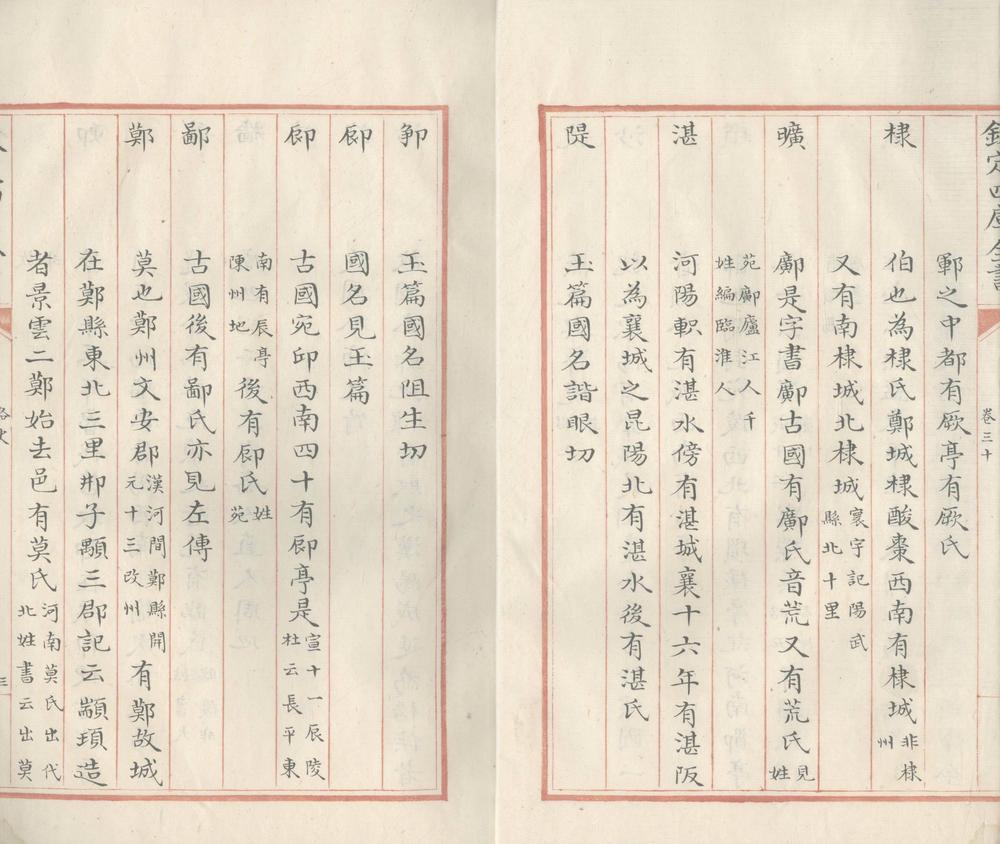 欽定四庫全書
卷三十
鄆之中都有厥亭有厥氏
棣
伯也為棣氏鄭城棣酸棗西南有棣城非棣州
又有南棣城北棣城寰宇記陽武縣北十里
曠
鄺是字書鄺古國有鄺氏音荒又有荒氏見姓
苑鄺廬江人千姓編臨淮人
湛
河陽軹有湛水傍有湛城襄十六年有湛阪
以為襄城之昆陽北有湛水後有湛氏
隄
玉篇國名諧眼切
玉篇國名阻生切
國名見玉篇
古國宛邱西南四十有郮亭是宣十一辰陵杜云長平東
南有辰亭陳州地後有郮氏姓苑
鄙
古國後有鄙氏亦見左傳
鄚
莫也鄚州文安郡漢河間鄚縣開元十三改州有鄚故城
在鄚縣東北三里邢子顒三郡記云顓頊造
者景雲二鄚始去邑有莫氏河南莫氏出代北姓書云出莫
路史
三